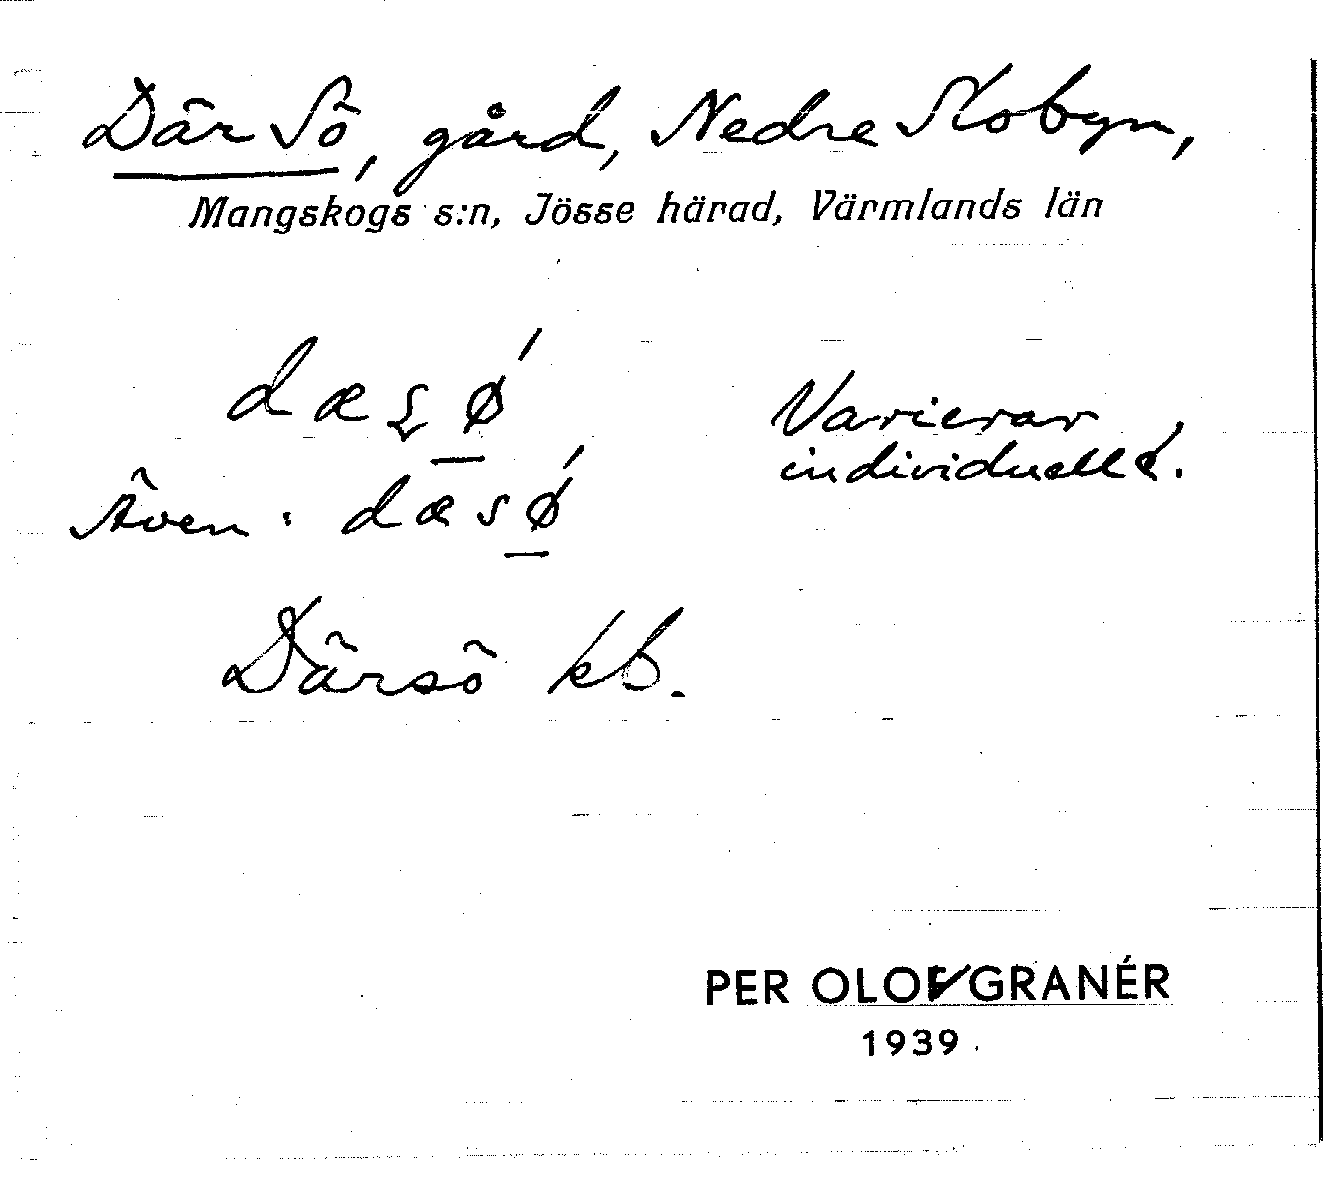 Där Sö, gård, Nedre Skobyn,
Mangskogs s:n, Jösse härad, Värmlands län
dæʂǿ̱
Varierar
individuellt.
Även: dæsǿ̱
Därsö kb.
PER OLOV GRANÉR
1939.